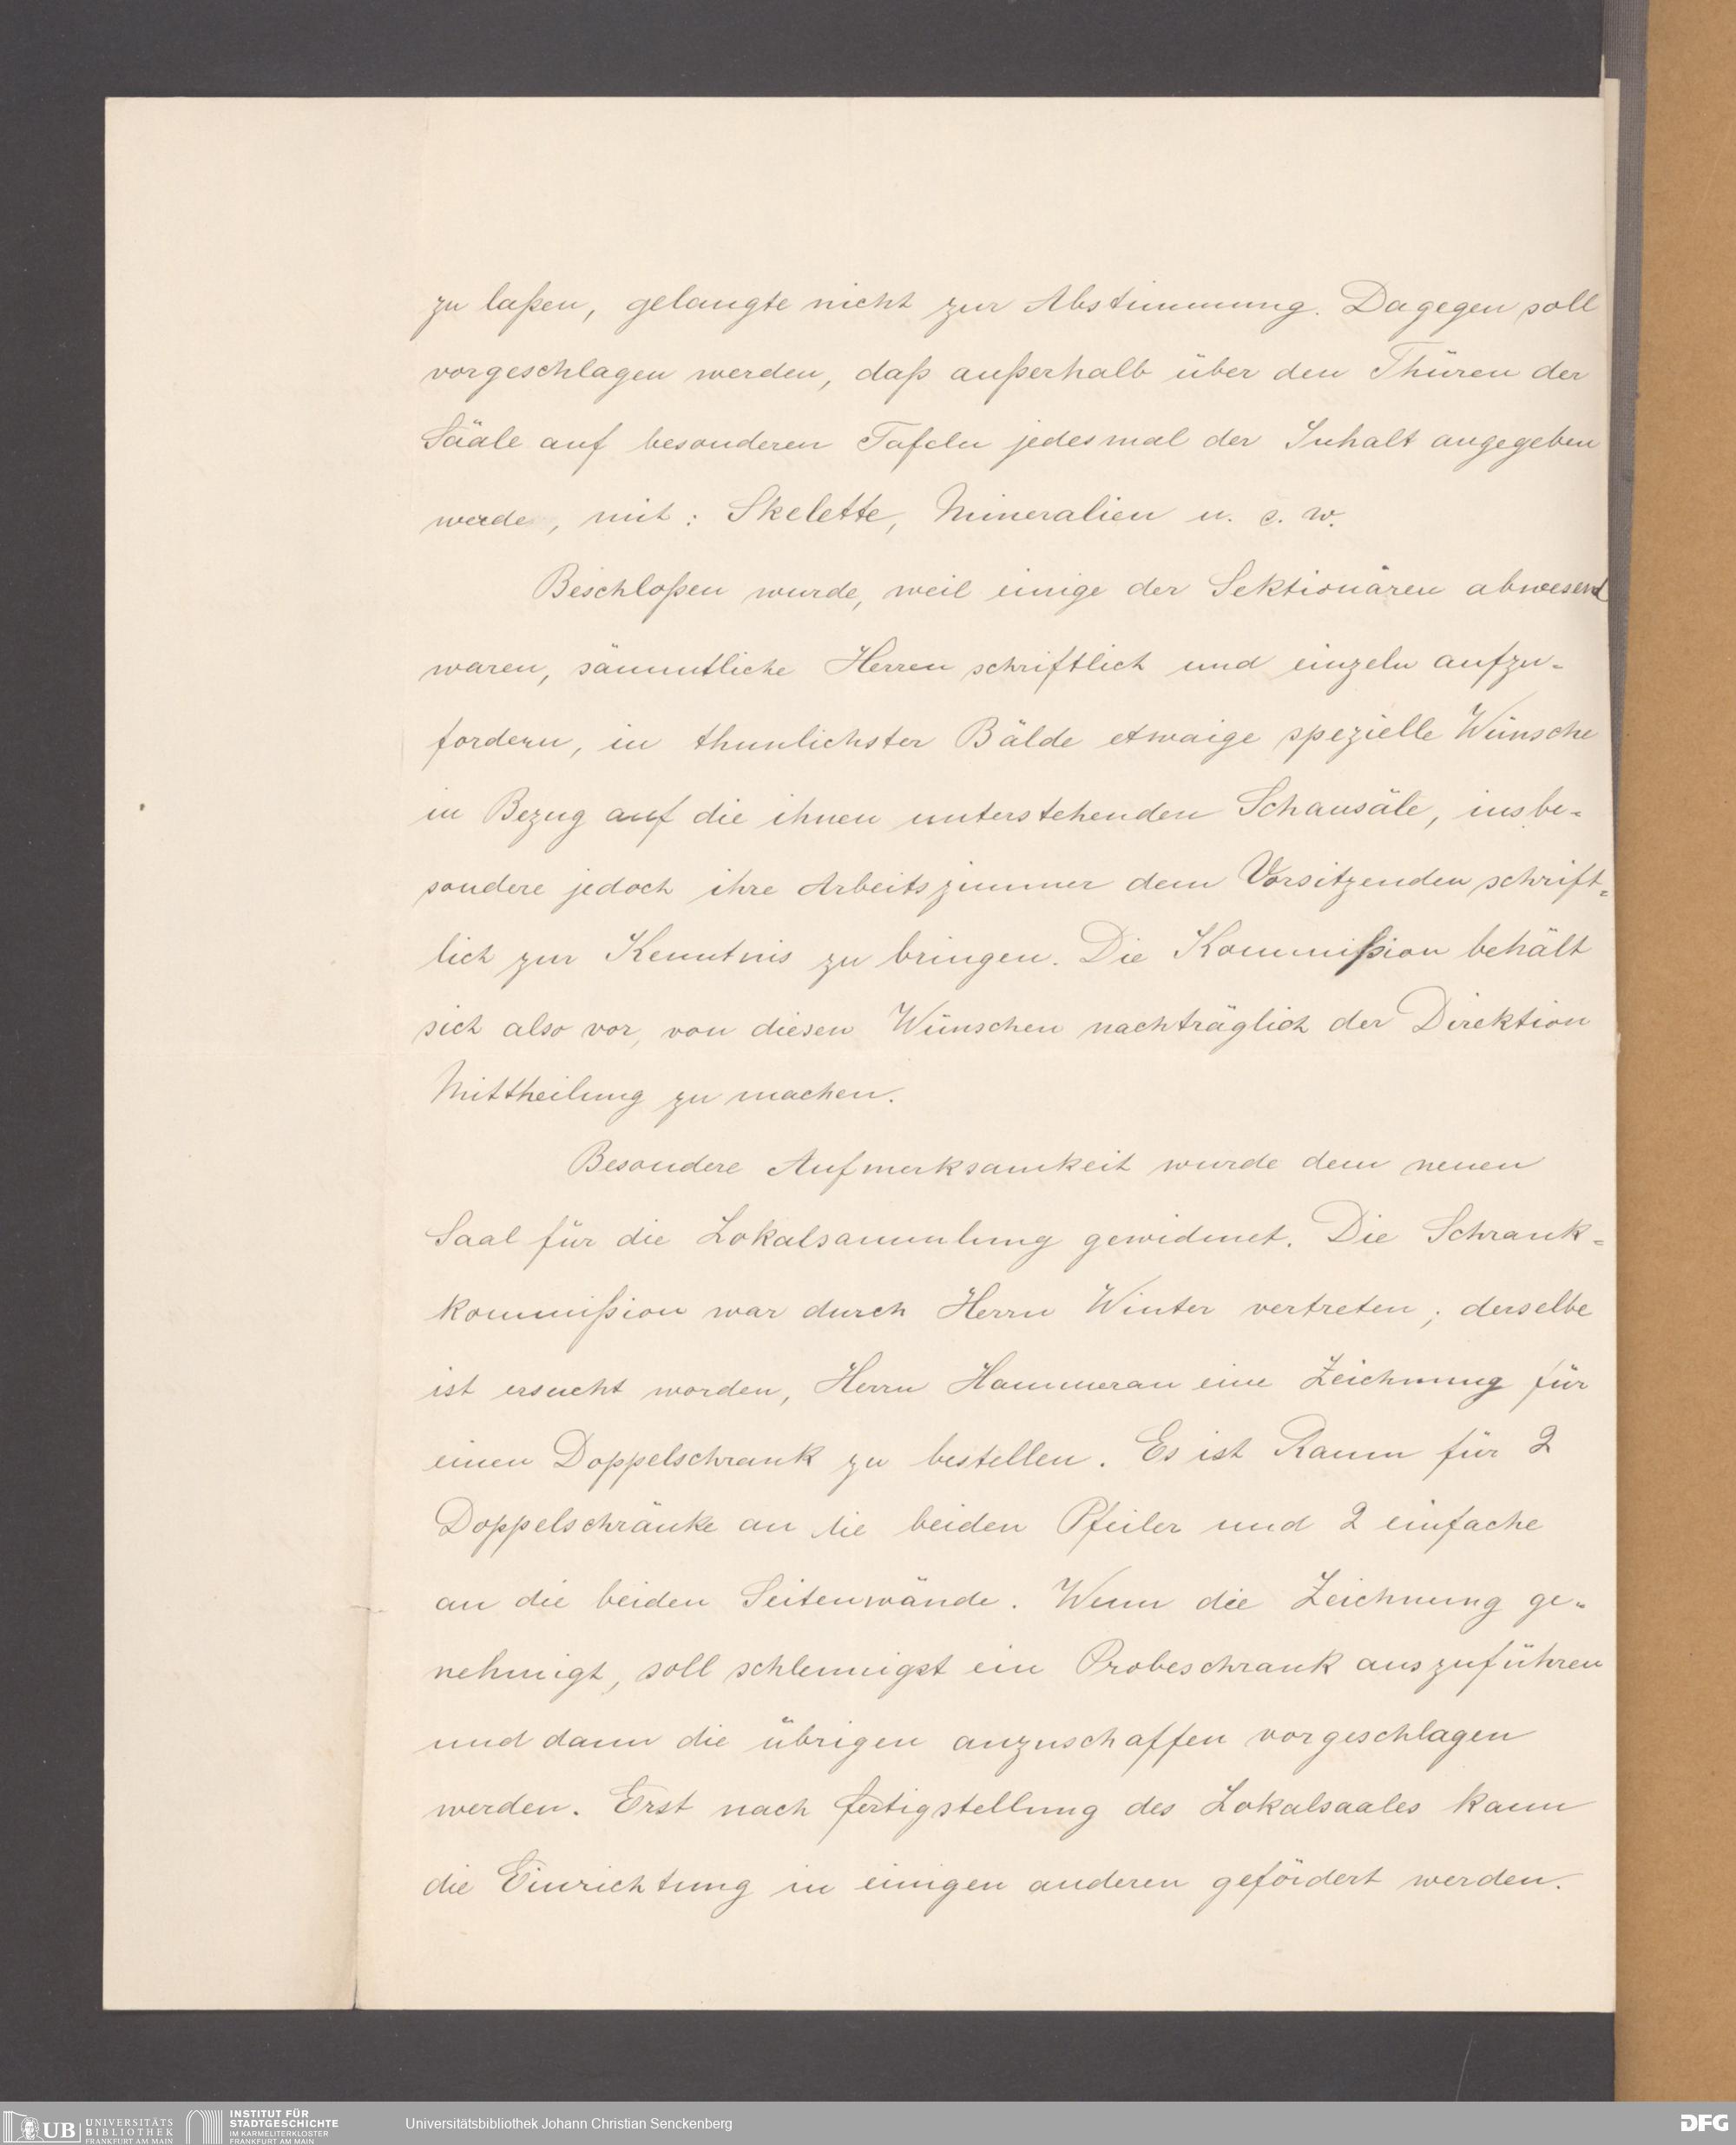 zu laßen, gelangte nicht zur Abstimmung. Dagegen soll
vorgeschlagen werden, daß außerhalb über den Thüren der
Sääle auf besonderen Tafeln jedesmal der Inhalt angegeben
werde, mit: Skelette, Mineralien u. s. w.
Beschloßen wurde, weil einige der Sektionären abwesend
waren, sämmtliche Herren schriftlich und einzeln aufzu-
fordern, in thunlichster Bälde etwaige spezielle Wünsche
in Bezug auf die ihnen unterstehenden Schausäle, insbe-
sondere jedoch ihre Arbeitszimmer dem Vorsitzenden schrift-
lich zur Kenntnis zu bringen. Die Kommißion behält
sich also vor, von diesen Wünschen nachträglich der Direktion
Mittheilung zu machen.
Besondere Aufmerksamkeit wurde dem neuen
Saal für die Lokalsammlung gewidmet. Die Schrank-
kommißion war durch Herrn Winter vertreten; derselbe
ist ersucht worden, Herrn Hammeran eine Zeichnung für
einen Doppelschrank zu bestellen. Es ist Raum für 2
Doppelschränke an die beiden Pfeiler und 2 einfache
an die beiden Seitenwände. Wenn die Zeichnung ge-
nehmigt, soll schleunigst ein Probeschrank auszuführen
und dann die übrigen anzuschaffen vorgeschlagen
werden. Erst nach fertigstellung des Lokalsaales kann
die Einrichtung in einigen anderen gefördert werden.
UB UNIVERSITÄTS
BIBLIOTHEK
FRANKFURT AM MAIN
INSTITUT FÜR
STADTGESCHICHTE
IM KARMELITERKLOSTER
FRANKFURT AM MAIN
Universitätsbibliothek Johann Christian Senckenberg
DFG